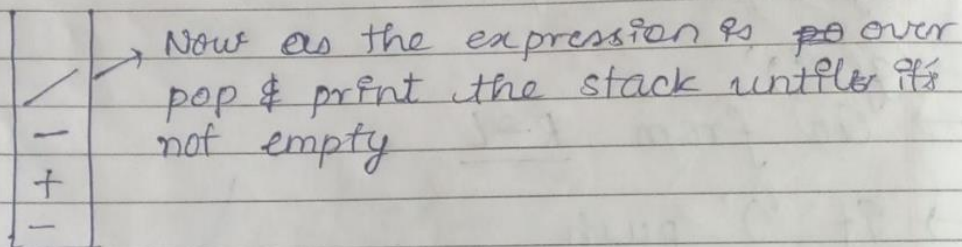 Now as the expression is over
/ pop & print the stack until it's
− not empty
+
−